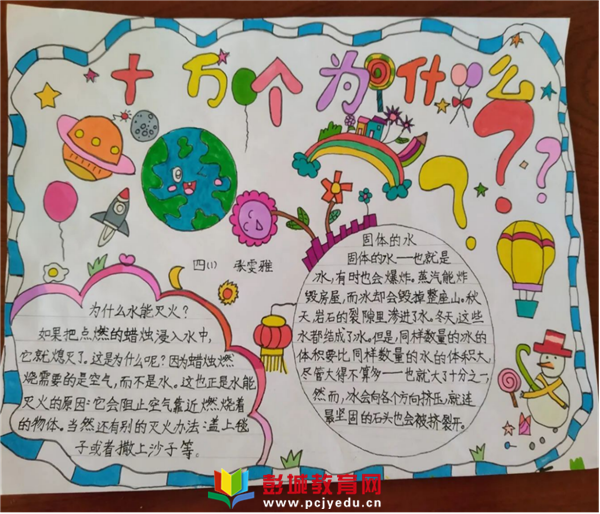 十万个为什么
四(1) 张雯雅
为什么水能灭火?
如果把点燃的蜡烛浸入水中,
它就熄灭了。这是为什么呢?因为蜡烛燃
烧需要的是空气,而不是水。这也正是水能
灭火的原因:它会阻止空气靠近燃烧着
的物体。当然还有别的灭火办法:盖上毯
子或者撒上沙子等。
固体的水
固体的水——也就是
冰,有时也会爆炸。蒸汽能炸
毁房屋,而冰却会毁掉整座山。秋
天,岩石的裂隙里渗进了水。冬天,这些
水都结成了冰。但是,同样数量的冰的
体积要比同样数量的水的体积大,
尽管大得不算多——也就大了十分之一,
然而,冰会向各个方向挤压,就连
最坚固的石头也会被挤裂开。
彭城教育网
www.pcjyedu.cn